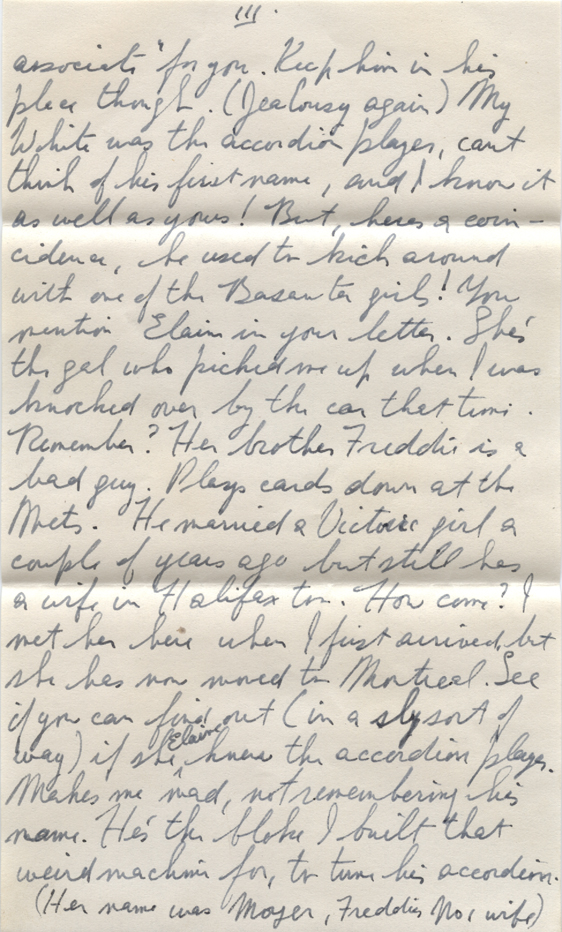 III.
associate" for you. Keep him in his
place though. (Jealousy again) My
White was the accordion player, cant
think of his first name, and I know it
as well as yours! But, heres a coin-
cidence, he used to kick around
with one of the Basanta girls! You
mention Elaine in your letter. She's
the gal who picked me up when I was
knocked over by the car that time.
Remember? Her brother Freddie is a
bad guy. Plays cards down at the
Mets. He married a Victoria girl a
couple of years ago but still has
a wife in Halifax too. How come? I
met her here when I first arrived, but
she has now moved to Montreal. See
if you can find out (in a sly sort of
way) if she Elaine knew the accordion player.
Makes me mad, not remembering his
name. He's the bloke I built that
weird machine for, to tune his accordion.
(Her name was Moyer, Freddies No 1 wife)